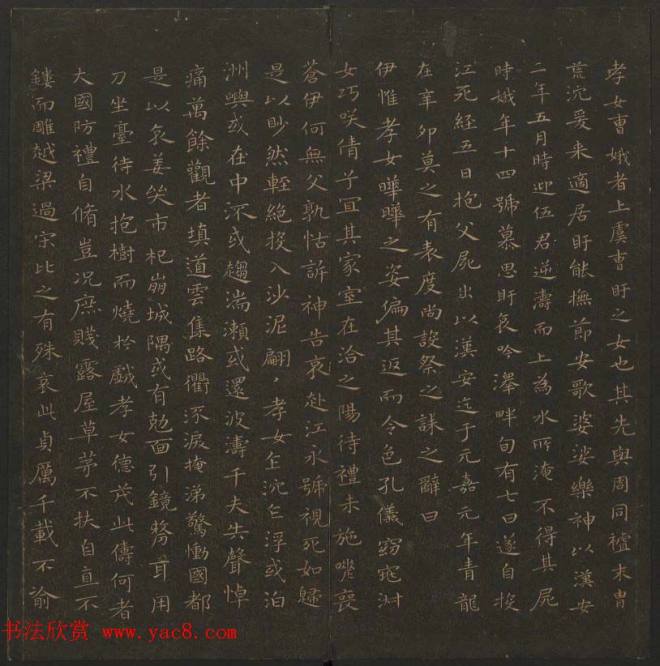 孝女曹娥者上虞曹盱之女也其先與周同祖末胄
荒沉爰来適居盱能撫節安歌婆娑樂神以漢安
二年五月時迎伍君逆濤而上為水所淹不得其屍
時娥年十四號慕思盱哀吟澤畔旬有七日遂自投
江死経五日抱父屍出以漢安迄于元嘉元年青龍
在辛卯莫之有表度尚設祭之誄之辭曰
伊惟孝女曄曄之姿偏其返而令色孔儀窈窕淑
女巧咲倩兮宜其家室在洽之陽待禮未施嗟喪
蒼伊何無父孰怙訴神告哀赴江永號視死如歸
是以眇然輕絕投入沙泥翩翩孝女乍沉乍浮或泊
洲嶼或在中流或趨湍瀬或還波濤千夫失聲悼
痛萬餘觀者填道雲集路衢流淚掩涕驚慟國都
是以哀姜哭市杞崩城隅或有剋面引鏡剺耳用
刀坐臺待水抱樹而燒扵戲孝女德茂此儔何者
大國防禮自脩豈況庶賤露屋草茅不扶自直不
鏤而雕越梁過宋比之有殊哀此貞厲千載不渝
书法欣赏 www.yac8.com